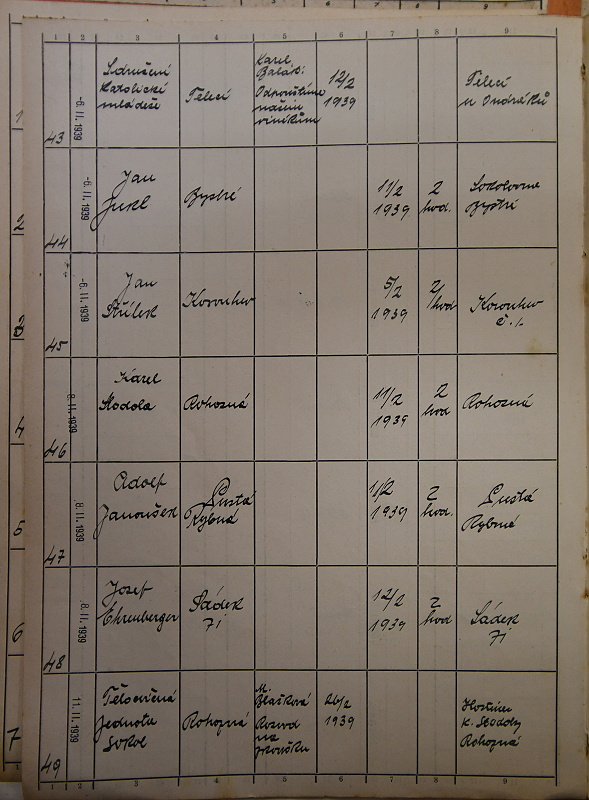 1 2 3 4 5 6 7 8 9
43
-6. II. 1939
Sdružení
katolické
mládeže
Telecí
Karel
Balák:
Odpouštíme
našim
viníkům
12/2
1939
Telecí
u Ondráků
44
-8. II. 1939
Jan
Jukl
Bystré
11/2
1939
2
hod.
Sokolovna
Bystré
45
-6. II. 1939
Jan
Korouhev
5/2
1939
2
hod
Korouhev
č. 1.
46
8. II. 1939
Karel
Skodola
Rohozná
11/2
1939
2
hod
Rohozná
47
8. II. 1939
Adolf
Janoušek
Pustá
Rybná
11/2
1939
2
hod.
Pustá
Rybná
48
8. II. 1939
Josef
Ehrenberger
Sádek
71
12/2
1939
2
hod
Sádek
71
49
11. II. 1939
Tělocvičná
jednota
Sokol
Rohozná
M.
Blažková
Rozvod
na
zkoušku
26/2
1939
Hostinec
K. Skodoly
Rohozná
1 2 3 4 5 6 7 8 9
1
2
4
5
6
7